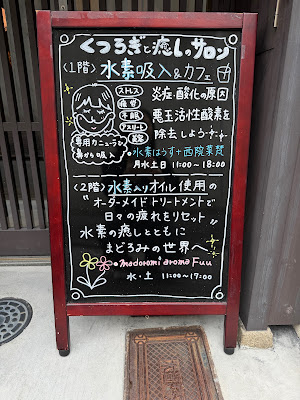 くつろぎと癒しのサロン
〈1階〉水素吸入&カフェ
ストレス
疲労
不眠
アスリート
美容
専用カニューラで
鼻から吸入
炎症・酸化の原因
悪玉活性酸素を
除去しよう
水素はうす+西院薬想
月水土日 11:00〜18:00
〈2階〉水素入りオイル使用の
"オーダーメイドトリートメントで
日々の疲れをリセット"
水素の癒しとともに
まどろみの世界へ
madoromi aroma Fuu
水・土 11:00〜17:00